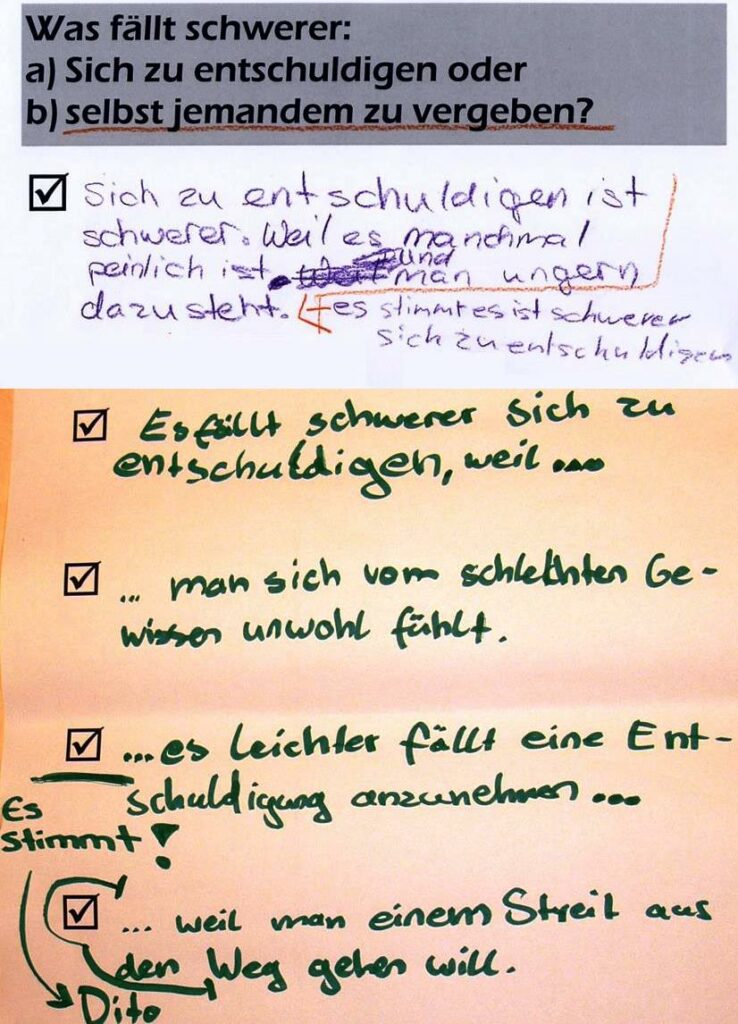 Was fällt schwerer:
a) Sich zu entschuldigen oder
b) selbst jemandem zu vergeben?
Sich zu entschuldigen ist
schwerer. Weil es manchmal
peinlich ist und man ungern
dazusteht.
es stimmt es ist schwerer
sich zu entschuldigen
Es fällt schwerer sich zu
entschuldigen, weil ...
... man sich vom schlechten Ge-
wissen unwohl fühlt.
...es leichter fällt eine Ent-
schuldigung anzunehmen ...
Es
stimmt!
... weil man einem Streit aus
den Weg gehen will.
Dito